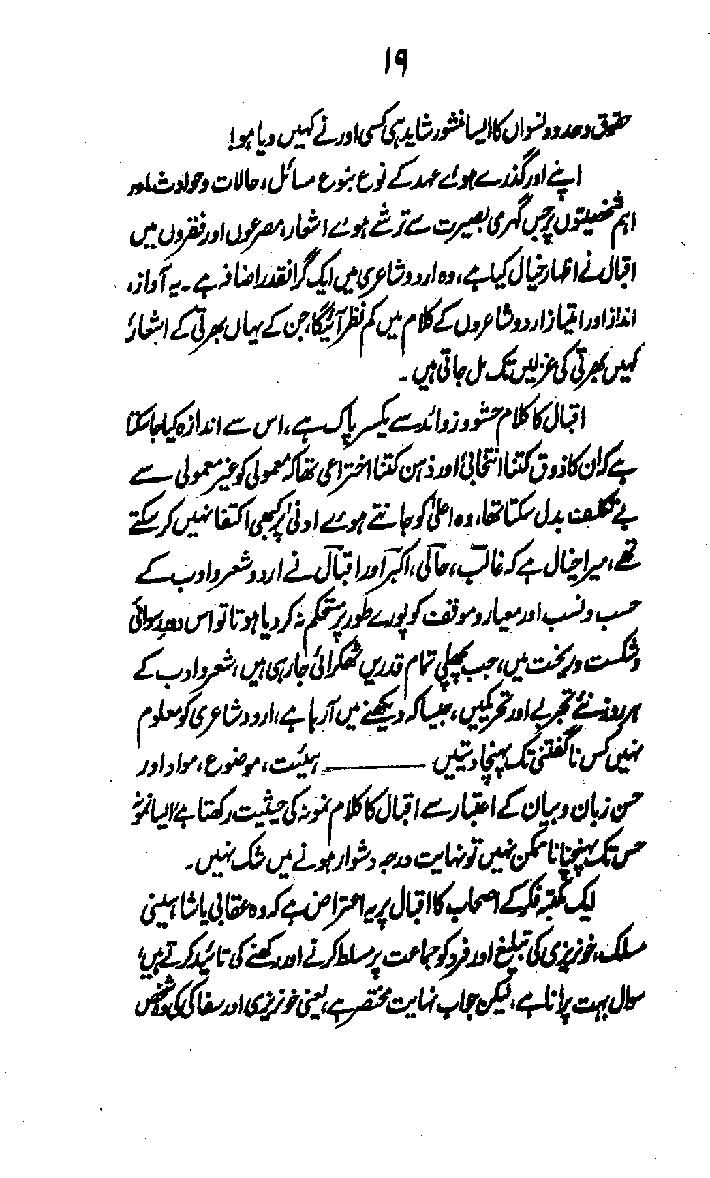 ۱۹
حقوق و حدود نسواں کا ایسا منشور شاید ہی کسی اور نے کہیں دیا ہو!
اپنے اور گذرے ہوئے عہد کے نوع بنوع مسائل، حالات و حوادث اور
اہم شخصیتوں پر جس گہری بصیرت سے ترشے ہوئے اشعار، مصرعوں اور فقروں میں
اقبال نے اظہار خیال کیا ہے، وہ اردو شاعری میں ایک گرانقدر اضافہ ہے۔ یہ آواز،
انداز اور امتیاز اردو شاعروں کے کلام میں کم نظر آئیگا، جن کے یہاں بھرتی کے اشعار
کہیں بھرتی کی غزلیں تک مل جاتی ہیں۔
اقبال کا کلام حشو و زوائد سے یکسر پاک ہے، اس سے اندازہ کیا جاسکتا
ہے کہ ان کا ذوق کتنا انتخابی اور ذہن کتنا اختراعی تھا کہ معمولی کو غیر معمولی سے
بے تکلف بدل سکتا تھا، وہ اعلیٰ کو جانتے ہوئے ادنیٰ پر کبھی اکتفا نہیں کرسکتے
تھے، میرا خیال ہے کہ غالبؔ، حالیؔ، اکبرؔ اور اقبالؔ نے اردو شعر و ادب کے
حسب و نسب اور معیار و موقف کو پورے طور پر مستحکم نہ کردیا ہوتا تو اس دور رسوائی
و شکست و ریخت میں، جب پچھلی تمام قدریں ٹھکرائی جارہی ہیں، شعر و ادب کے
ہر روز نئے تجربے اور تحریکیں، جیسا کہ دیکھنے میں آرہا ہے، اردو شاعری کو معلوم
نہیں کس ناگفتنی تک پہنچا دیتیں ــــــــــ ہیئت، موضوع، مواد اور
حسن زبان و بیان کے اعتبار سے اقبال کا کلام نمونہ کی حیثیت رکھتا ہے، ایسا نمونہ
جس تک پہنچنا ناممکن نہیں تو نہایت درجہ دشوار ہونے میں شک نہیں۔
ایک مکتبہ فکر کے اصحاب کا اقبال پر یہ اعتراض ہے کہ وہ عقابی یا شاہینی
مسلک، خونریزی کی تبلیغ اور فرد کو جماعت پر مسلط کرنے اور رکھنے کی تائید کرتے ہیں،
سوال بہت پرانا ہے، لیکن جواب نہایت مختصر ہے، یعنی خونریزی اور سفاکی کی وہ شخص